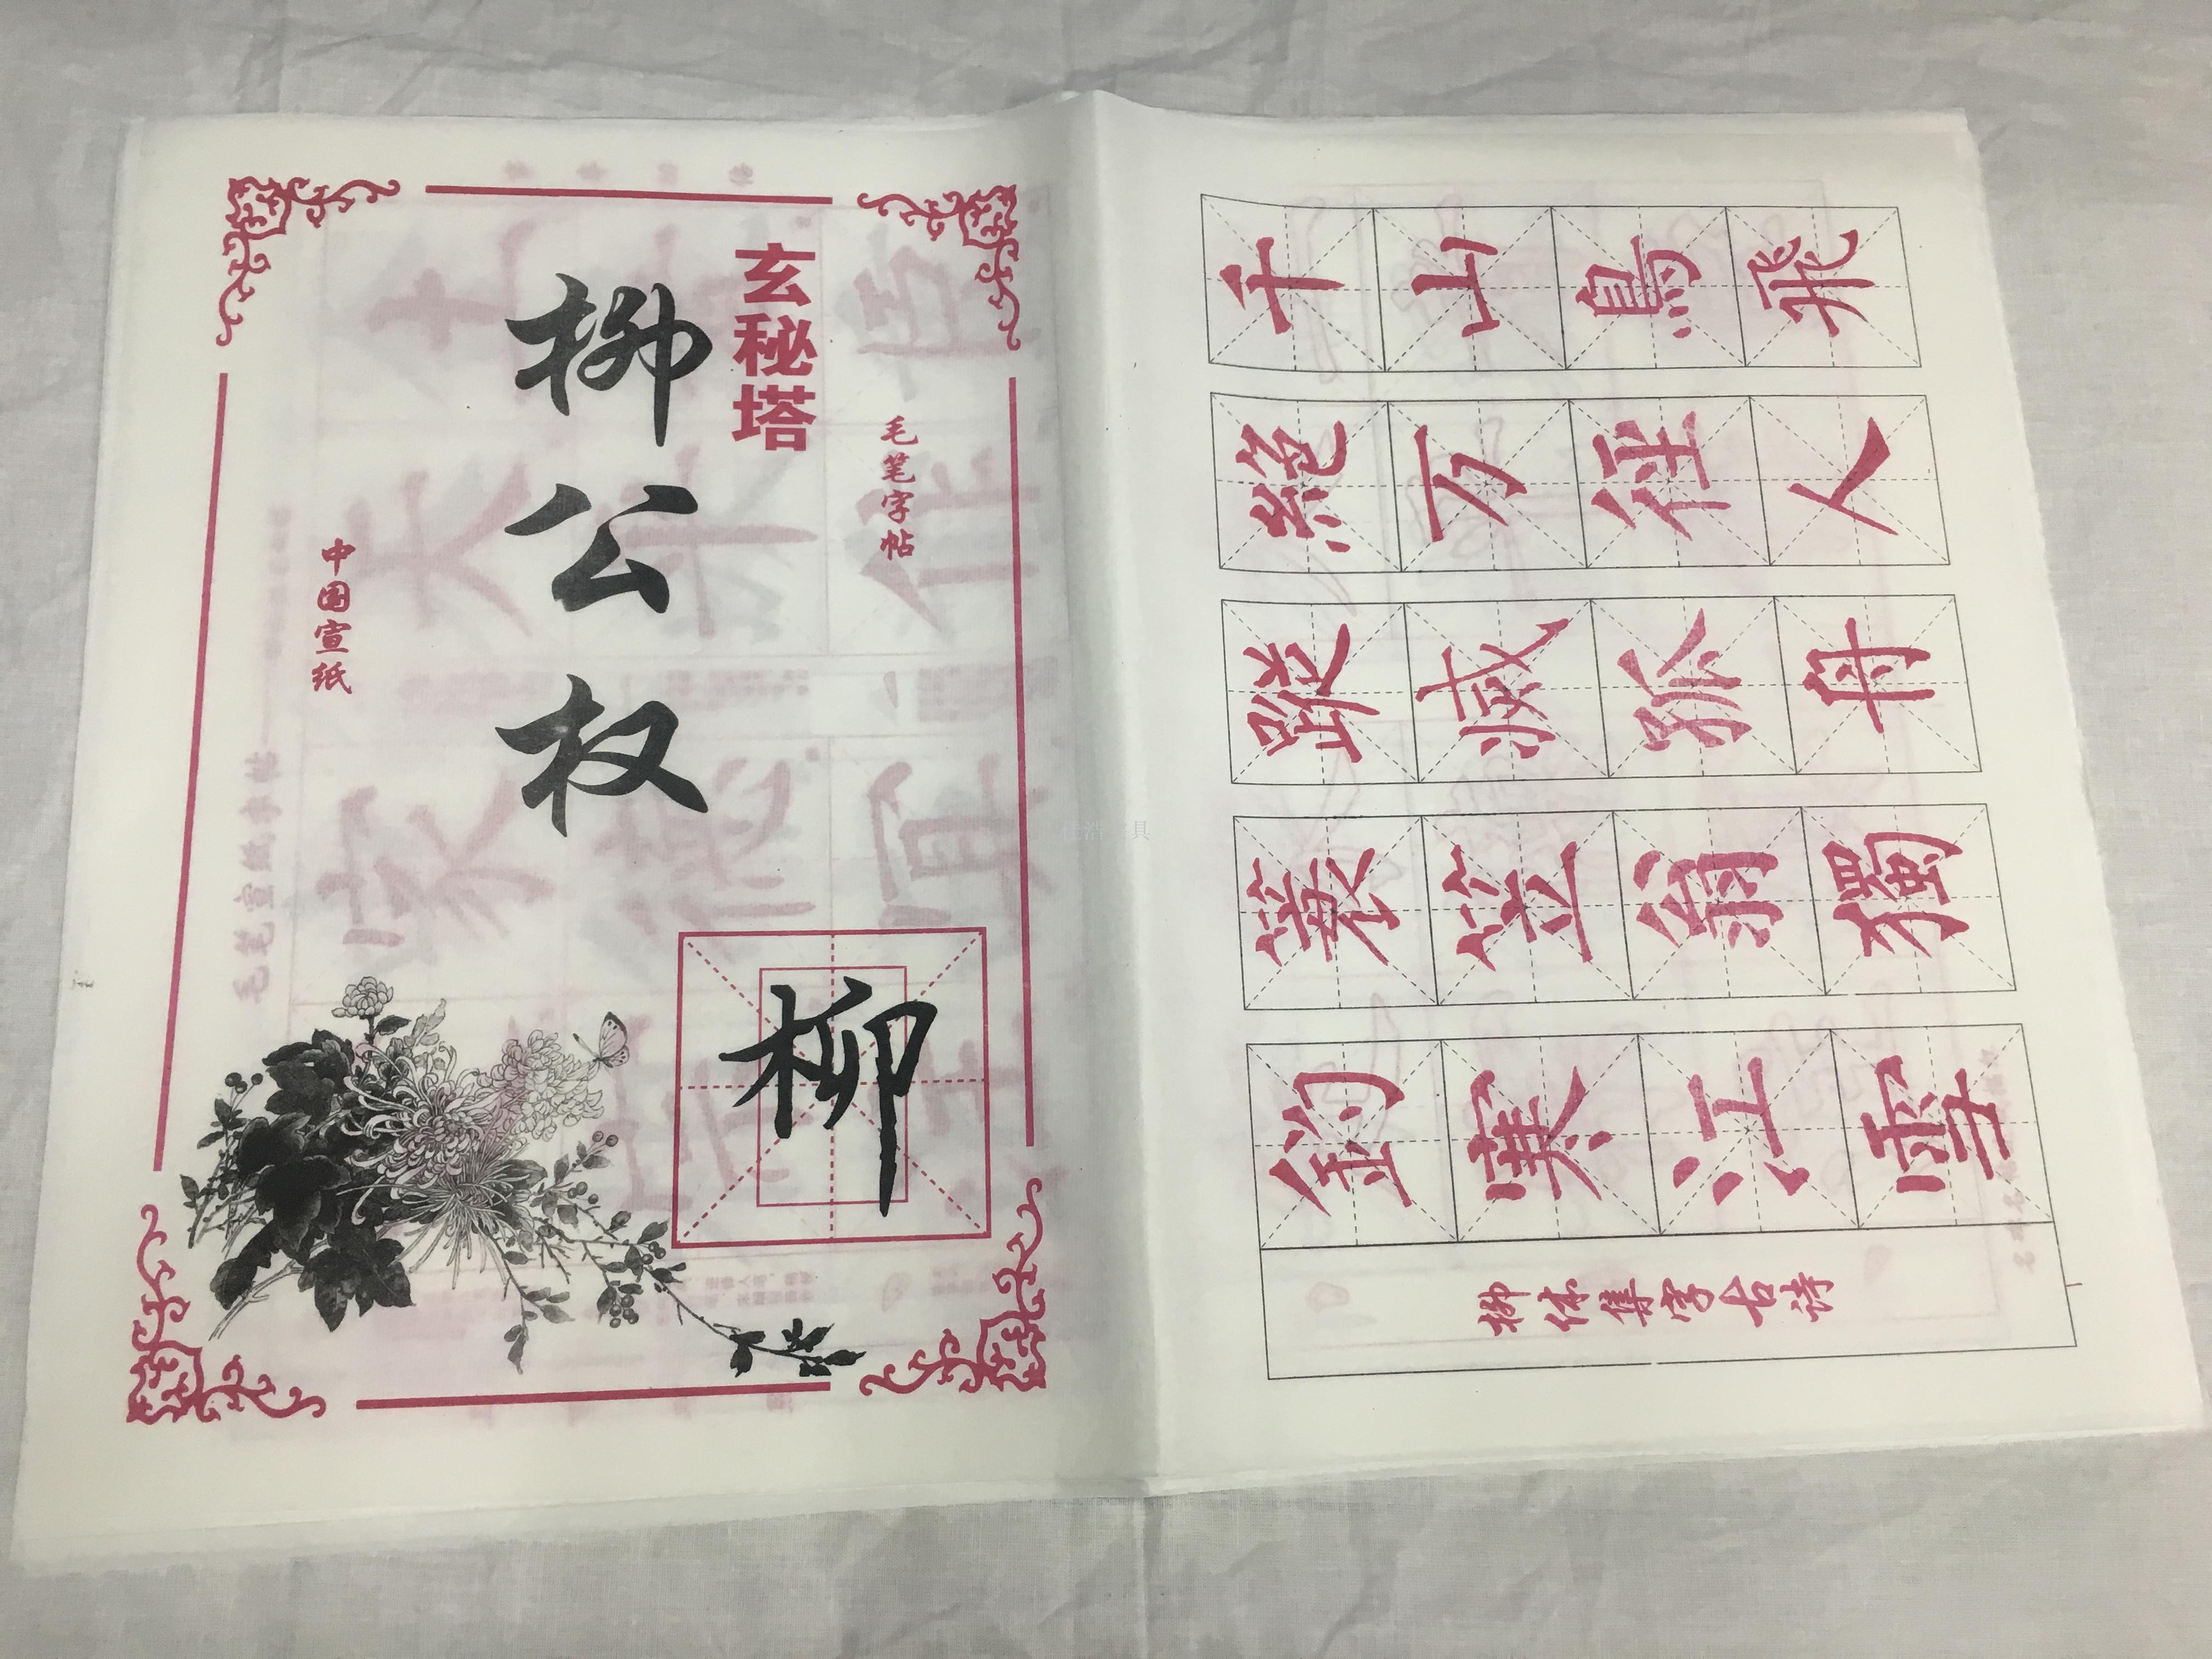 毛笔字帖
玄秘塔
柳公权
中国宣纸
柳
千山鳥飛
絕万径人
蹤滅孤舟
蓑笠翁獨
釣寒江雪
柳体集字古诗